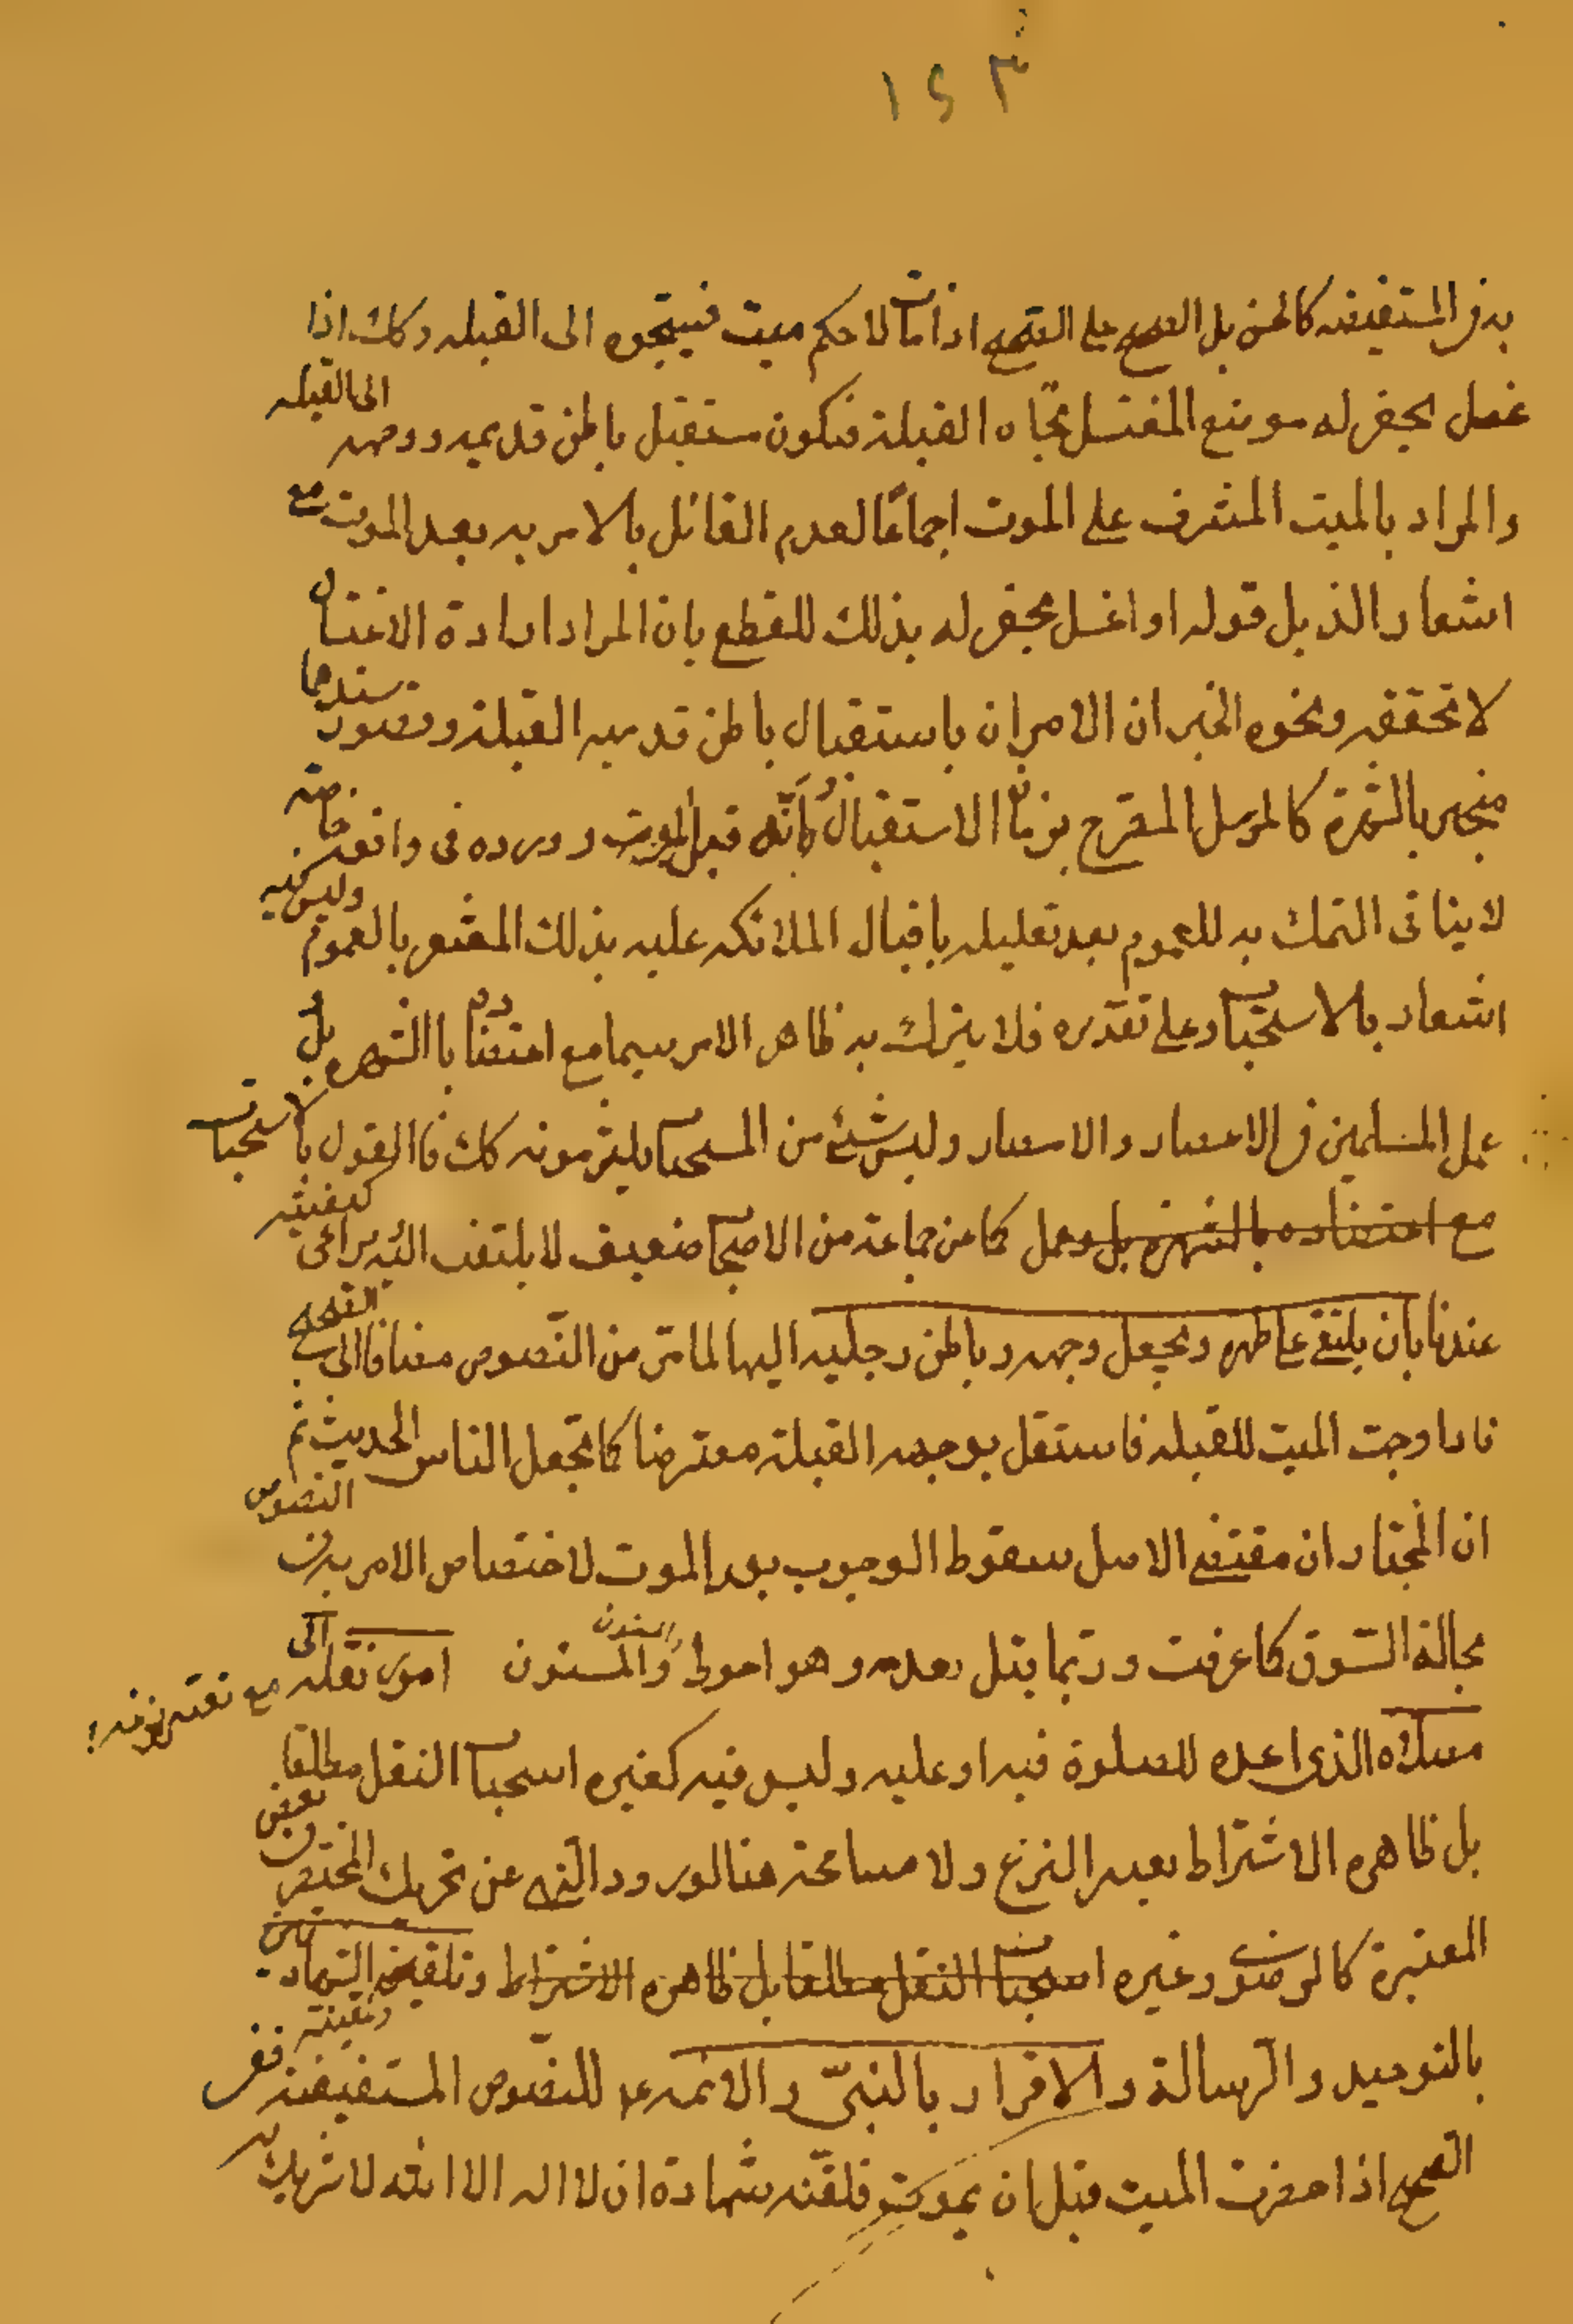 ١٢٣
به في المستفيضه كالحسن بل الصحيح على الصحيح اذا مات لاحدكم ميت فسجوه الى القبله وكك اذا
غسل يحفر له موضع المغتسل تجاه القبلة فيكون مستقبل باطن قدميه ووجهه الى القبله
والمراد بالميت المشرف على الموت اجماعًا لعدم القائل بالامر به بعد الموت مع
اشعار الذيل قوله اذا غسل يحفر له بذلك للقطع بان المراد ارادة الاغتسال
لا تحققه ونحوه الخبران الامران باستقبال باطن قدميه القبلة وقصور سندهما
منجبر بالشهرة كالمرسل المصرح بزمان الاستقبال وانّه قبل الموت ووروده في واقعه خاصّه
لا ينافي التمسك به للعموم بعد تعليله باقبال الملائكه عليه بذلك المشعر بالعموم وليس فيه
اشعار بالاستحباب وعلى تقديره فلا يترك به ظاهر الامر سيما مع اعتضاده بالشهره بل
عمل المسلمين في الاعصار والامصار وليس شئ من المستحبات يلتزمونه كك فالقول بالاستحباب
مع اعتضاده بالشهره بل وعمل كما عن جماعة من الاصحاب ضعيف لا يلتفت اليه يراعى كيفيته
عندنا بان يلقى على ظهره ويجعل وجهه وباطن رجليه اليها لما مرّ من النصوص مضافا الى الصحيح
فاذا وجهت الميت للقبله فاستقبل بوجهه القبلة معترضا كما تجعل الناس الحديث ثم
ان المختار ان مقتضى الاصل سقوط الوجوب بعد الموت لاختصاص الامر به في النصوص
بحالة السّوق كما عرفت وربّما يقل بعدمه وهو احوط والمسنون امور نقله الى
مصلاه الذي اعده للصلوة فيه او عليه وليس فيه كغيره استحباب النقل مطلقا مع تعسّر نزعه
بل ظاهره الاشتراط بعسر النزع ولا مسامحة هنا لورود النهى عن تحريك المحتضر في بعض
المعتبرة كالرضوي وغيره استحباب النقل مطلقا بل ظاهره الاشتراط وتلقينه الشهادتين
بالتوحيد والرسالة والاقرار بالنبيّ والائمه ع للنصوص المستفيضة ففي
الصحيح اذا حضرت الميت قبل ان يموت فلقّنه شهادة ان لا اله الا الله لا شريك له